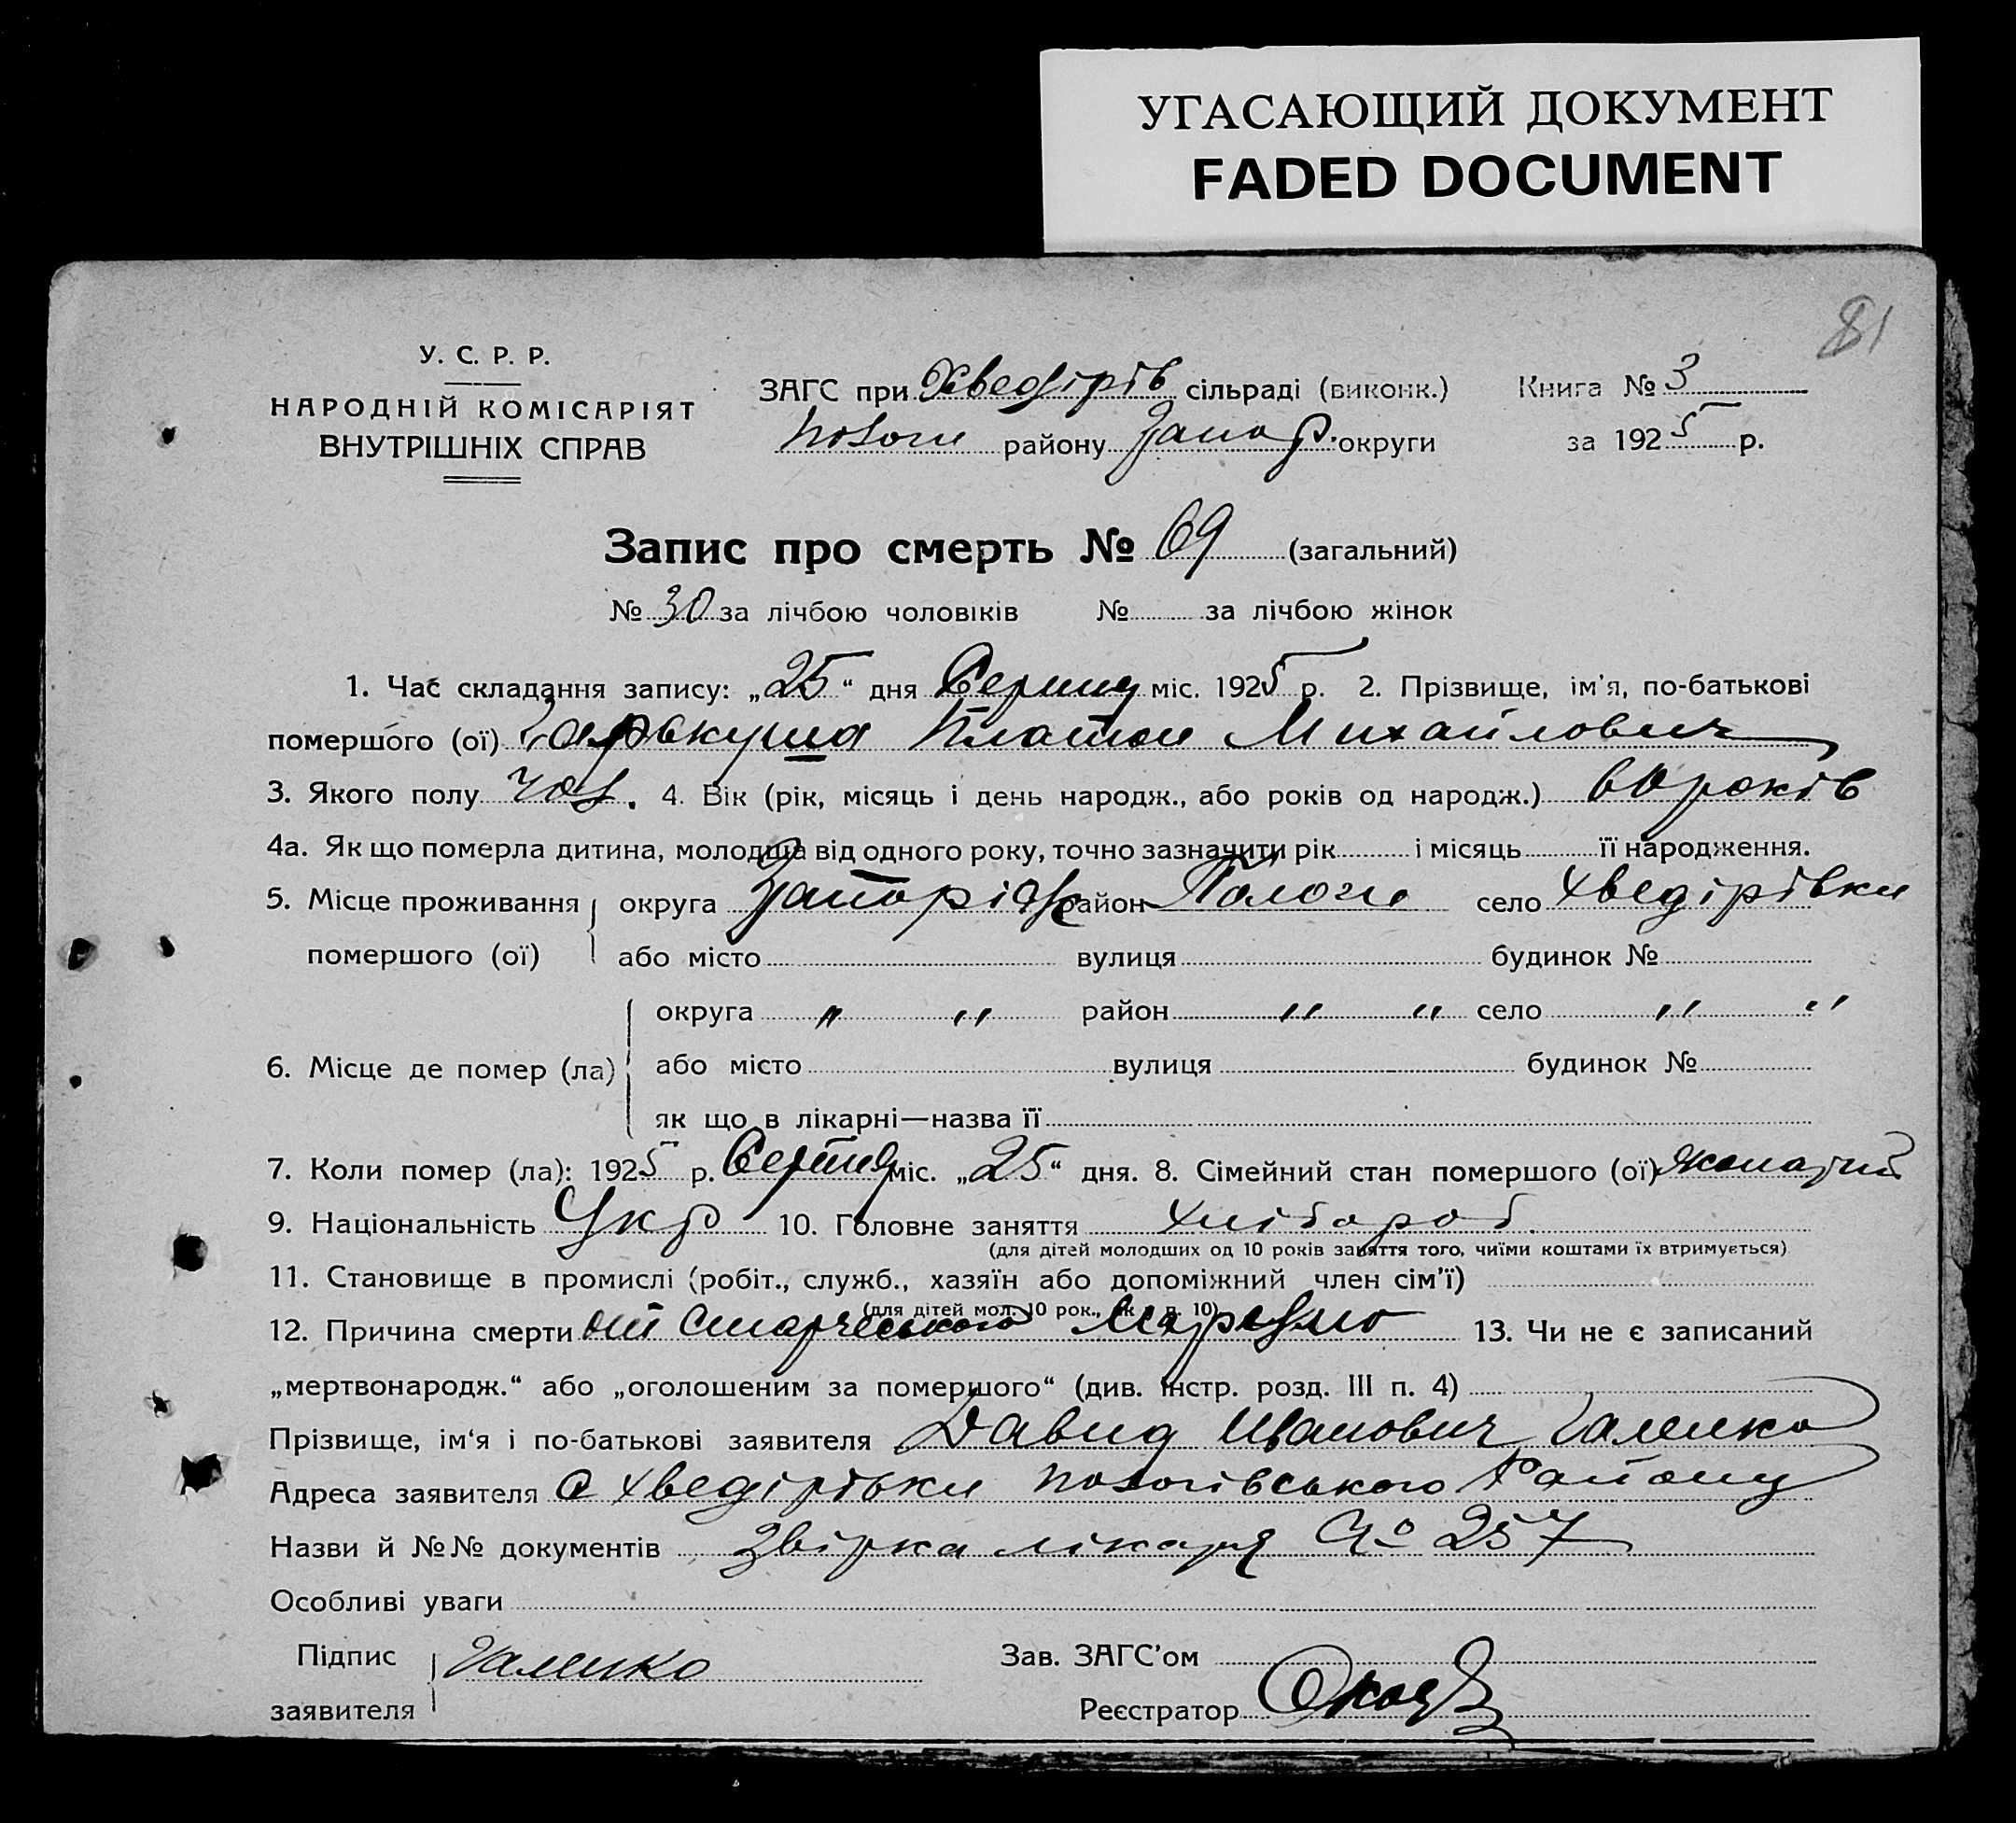 УГАСАЮЩИЙ ДОКУМЕНТ
FADED DOCUMENT
81
У. С. Р. Р.
НАРОДНІЙ КОМІСАРІЯТ
ВНУТРІШНІХ СПРАВ
ЗАГС при Хведірів сільраді (виконк.) Книга № 3
Пологи району Запор. округи за 1925 р.
Запис про смерть № 69 (загальний)
№ 30 за лічбою чоловіків № за лічбою жінок
1. Час складання запису: „25“ дня Серпня міс. 1925 р. 2. Прізвище, ім'я, по-батькові
помершого (ої) Гарькуша Платон Михайлович
3. Якого полу чол. 4. Вік (рік, місяць і день народж., або років од народж.) 60 років
4а. Як що померла дитина, молодша від одного року, точно зазначити рік і місяць її народження.
5. Місце проживання округа Запоріж район Пологи село Хведірівки
помершого (ої) або місто вулиця будинок №
округа " " район " " село " "
6. Місце де помер (ла) або місто вулиця будинок №
як що в лікарні—назва її
7. Коли помер (ла): 1925 р. Серпня міс. „25“ дня. 8. Сімейний стан помершого (ої) жонатий
9. Національність Укр 10. Головне заняття хлібороб.
(для дітей молодших од 10 років заняття того, чиїми коштами їх втримується)
11. Становище в промислі (робіт., служб., хазяїн або допоміжний член сім'ї)
(для дітей мол. 10 рок., як і п. 10)
12. Причина смерти от Старческого 13. Чи не є записаний
„мертвонародж.“ або „оголошеним за помершого“ (див. інстр. розд. III п. 4)
Прізвище, ім'я і по-батькові заявителя Давид Иванович Галенко
Адреса заявителя с Хведірівки Пологівського Району
Назви й №№ документів Звірка лікаря № 257
Особливі уваги
Підпис Галенко Зав. ЗАГС'ом
заявителя Реєстратор